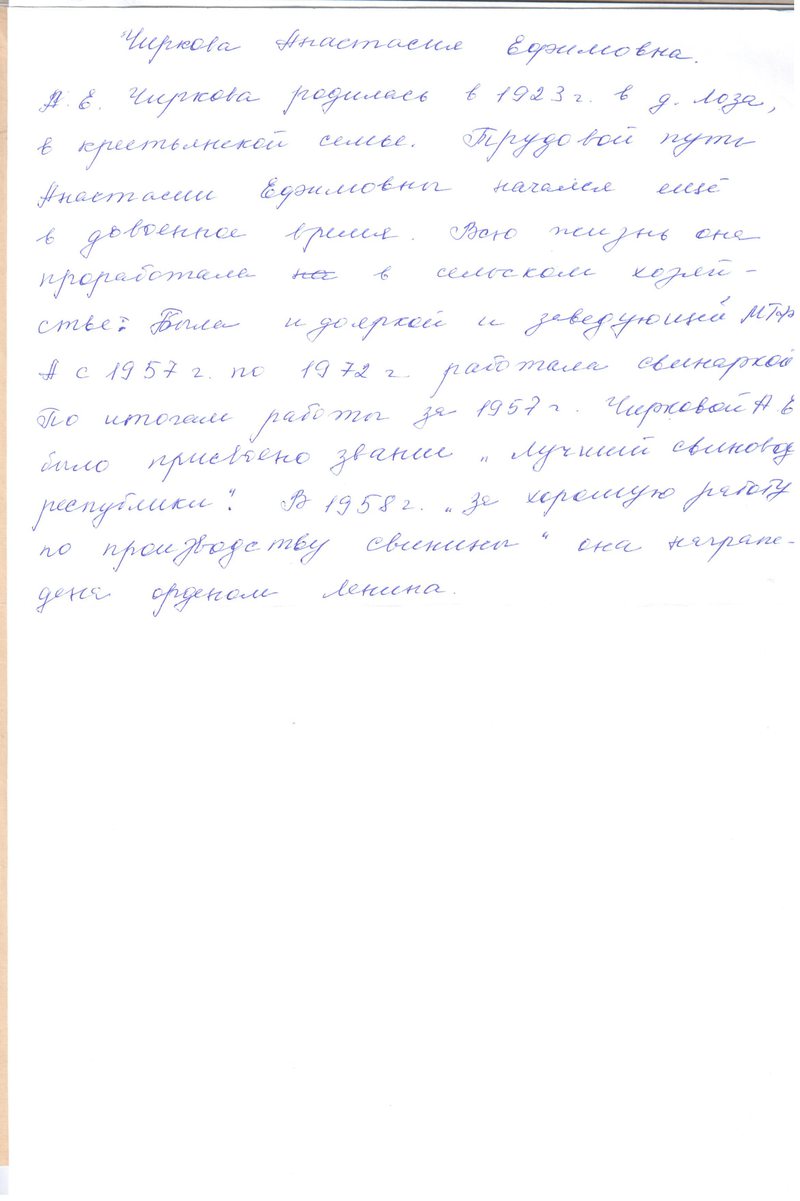 Чиркова Анастасия Ефимовна.
А. Е. Чиркова родилась в 1923 г. в д. Лоза,
в крестьянской семье. Трудовой путь
Анастасии Ефимовны начался ещё
в довоенное время. Всю жизнь она
проработала на в сельском хозяй-
стве: Была и дояркой и заведующей МТФ
А с 1957 г. по 1972 г. работала свинаркой
По итогам работы за 1957 г. Чирковой А Е
было присвоено звание „Лучший свиновод
республики". В 1958 г. „за хорошую работу
по производству свинины" она награж-
дена орденом Ленина.